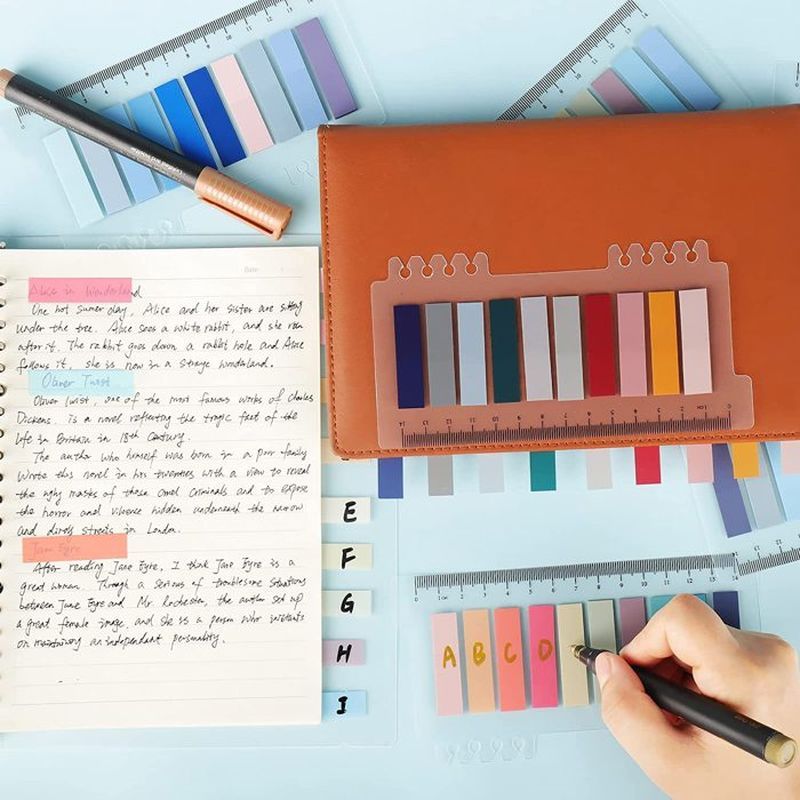 Date:
Alice in Wonderland
One hot sumer day, Alice and her sister are sitting
under the tree. Alice sees a white rabbit, and she run
after it. The rabbit goes down a rabbit hole and Alice
follows it, she is now in a strage wonderland.
Oliver Twist
Oliver Twist, one of the most famous works of Charles
Dickens. is a novel reflecting the tragic fact of the
life in Britain in 18th Century.
The author who himself was born in a poor family
wrote this novel in his twenties with a view to reveal
the ugly masks of those cruel criminals and to expose
the horror and violence hidden underneath the narrow
and dirty streets in London.
Jane Eyre
After reading Jane Eyre, I think Jane Eyre is a
great woman. Through a serious of troublesome situations
between Jane Eyre and Mr. Rochester, the author set up
a great female image, and she is a person who insistants
on maintaining an independant personality.
E
F
G
H
I
A B C D